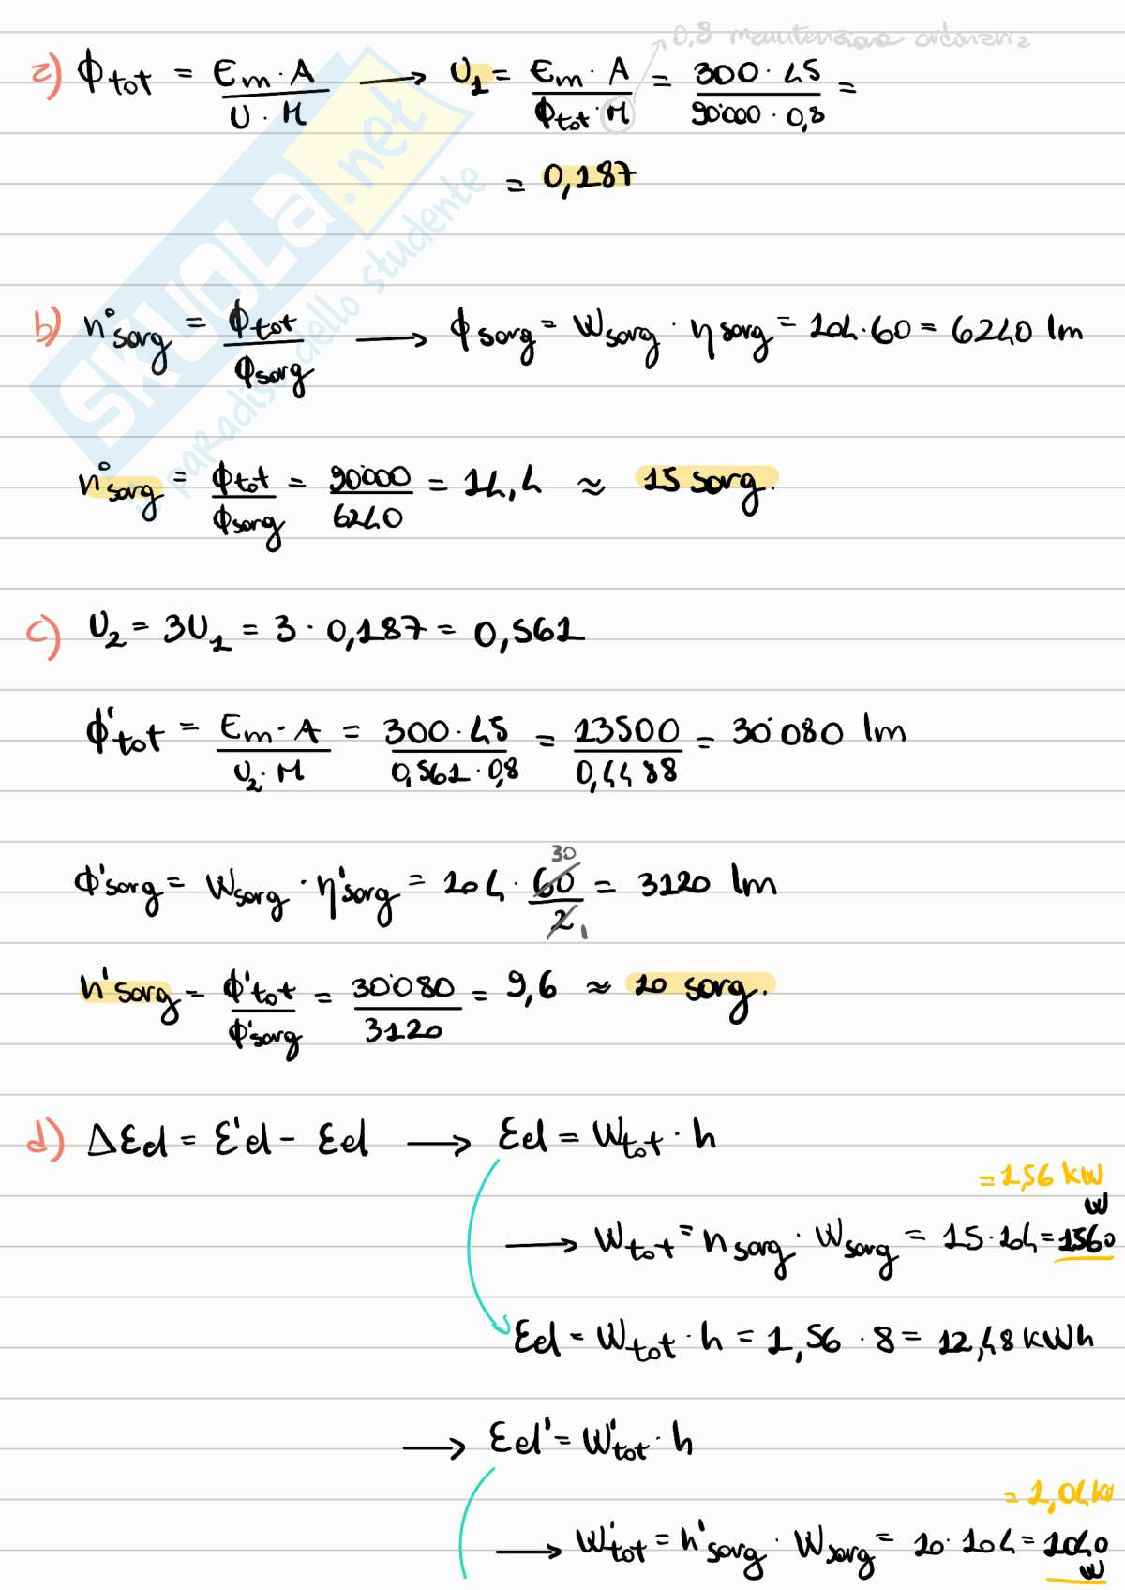 0,8 manutenzione ordinaria
a) ϕtot = Em · A / U · M → U1 = Em · A / ϕtot · M = 300 · 45 / 90'000 · 0,8 =
= 0,187
b) n°sorg = ϕtot / ϕsorg → ϕsorg = Wsorg · ηsorg = 104 · 60 = 6240 lm
n°sorg = ϕtot / ϕsorg = 90'000 / 6240 = 14,4 ≈ 15 sorg.
c) U2 = 3U1 = 3 · 0,187 = 0,561
ϕ'tot = Em · A / U2 · M = 300 · 45 / 0,561 · 0,8 = 13500 / 0,4488 = 30'080 lm
ϕ'sorg = Wsorg · η'sorg = 104 · 60 30 / 2 1 = 3120 lm
n'sorg = ϕ'tot / ϕ'sorg = 30'080 / 3120 = 9,6 ≈ 10 sorg.
d) ΔEel = E'el - Eel → Eel = Wtot · h
= 1,56 kW
→ Wtot = nsorg · Wsorg = 15 · 104 = 1560 W
Eel = Wtot · h = 1,56 · 8 = 12,48 kWh
→ Eel' = W'tot · h
= 1,04 kW
→ W'tot = n'sorg · Wsorg = 10 · 104 = 1040 W
SKUOLA.net
paradiso dello studente